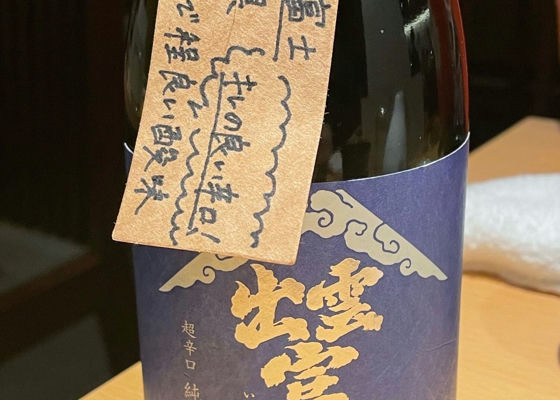 富士
キレの良い辛口!
で程良い酸味
出雲
富
超辛口 純